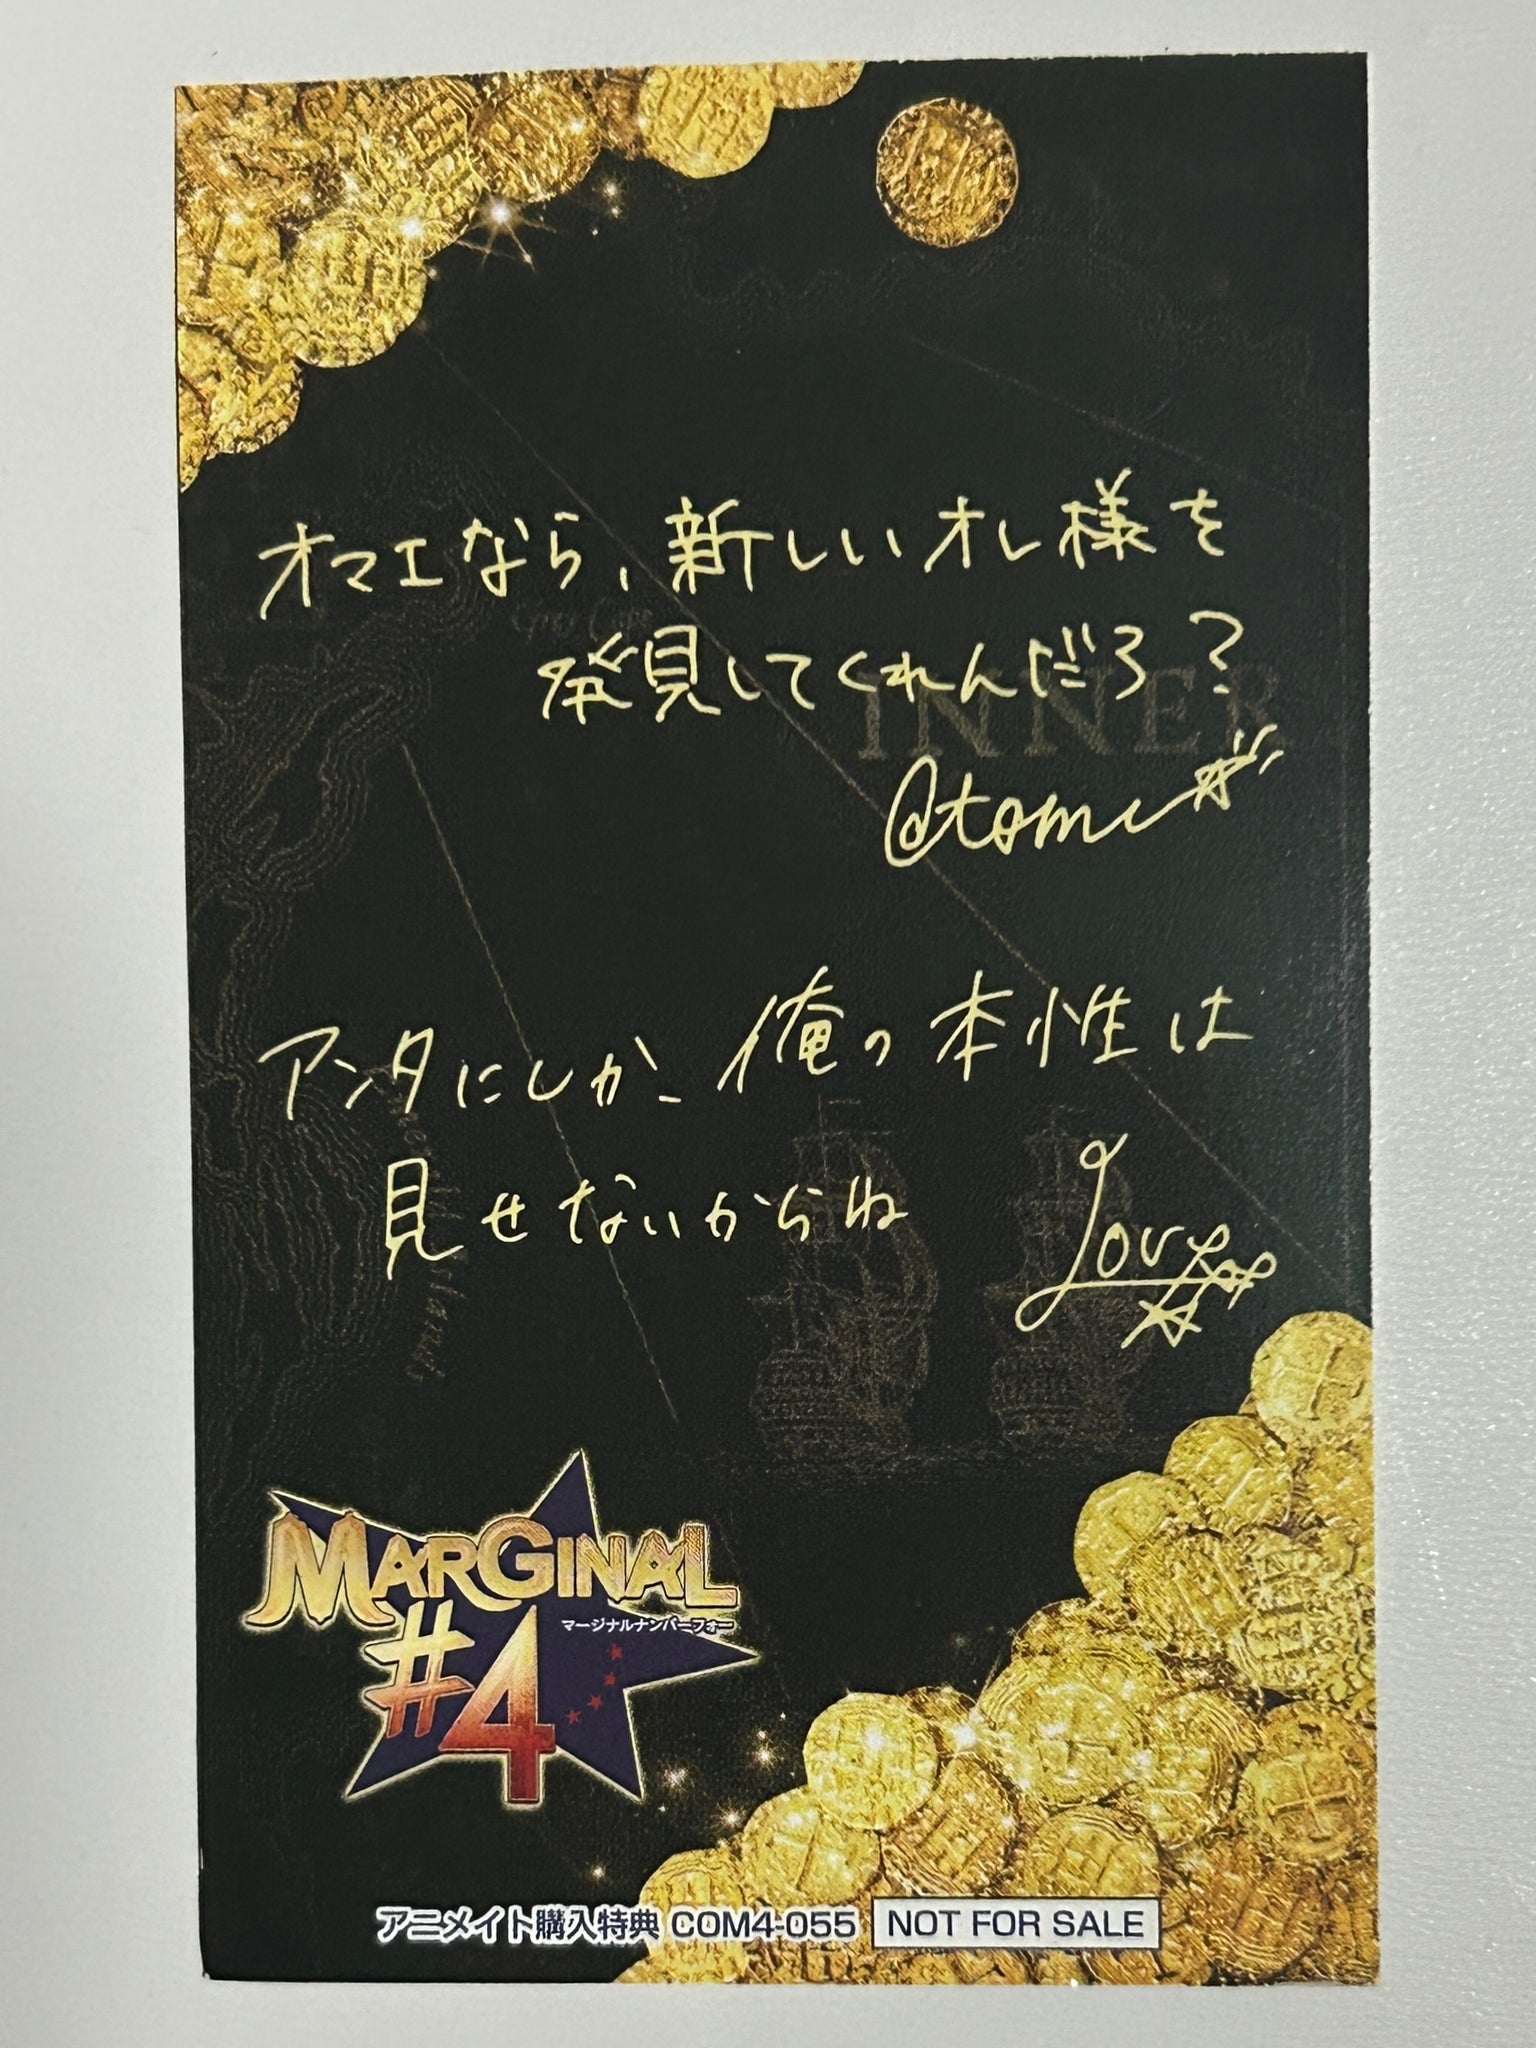 オマエなら、新しいオレ様を
発見してくれんだろ?
INNER
@tom
アンタにしか、俺の本性は
見せないからね
Love
MARGINAL
マージナルナンバーフォー
#4
アニメイト購入特典 COM4-055 NOT FOR SALE